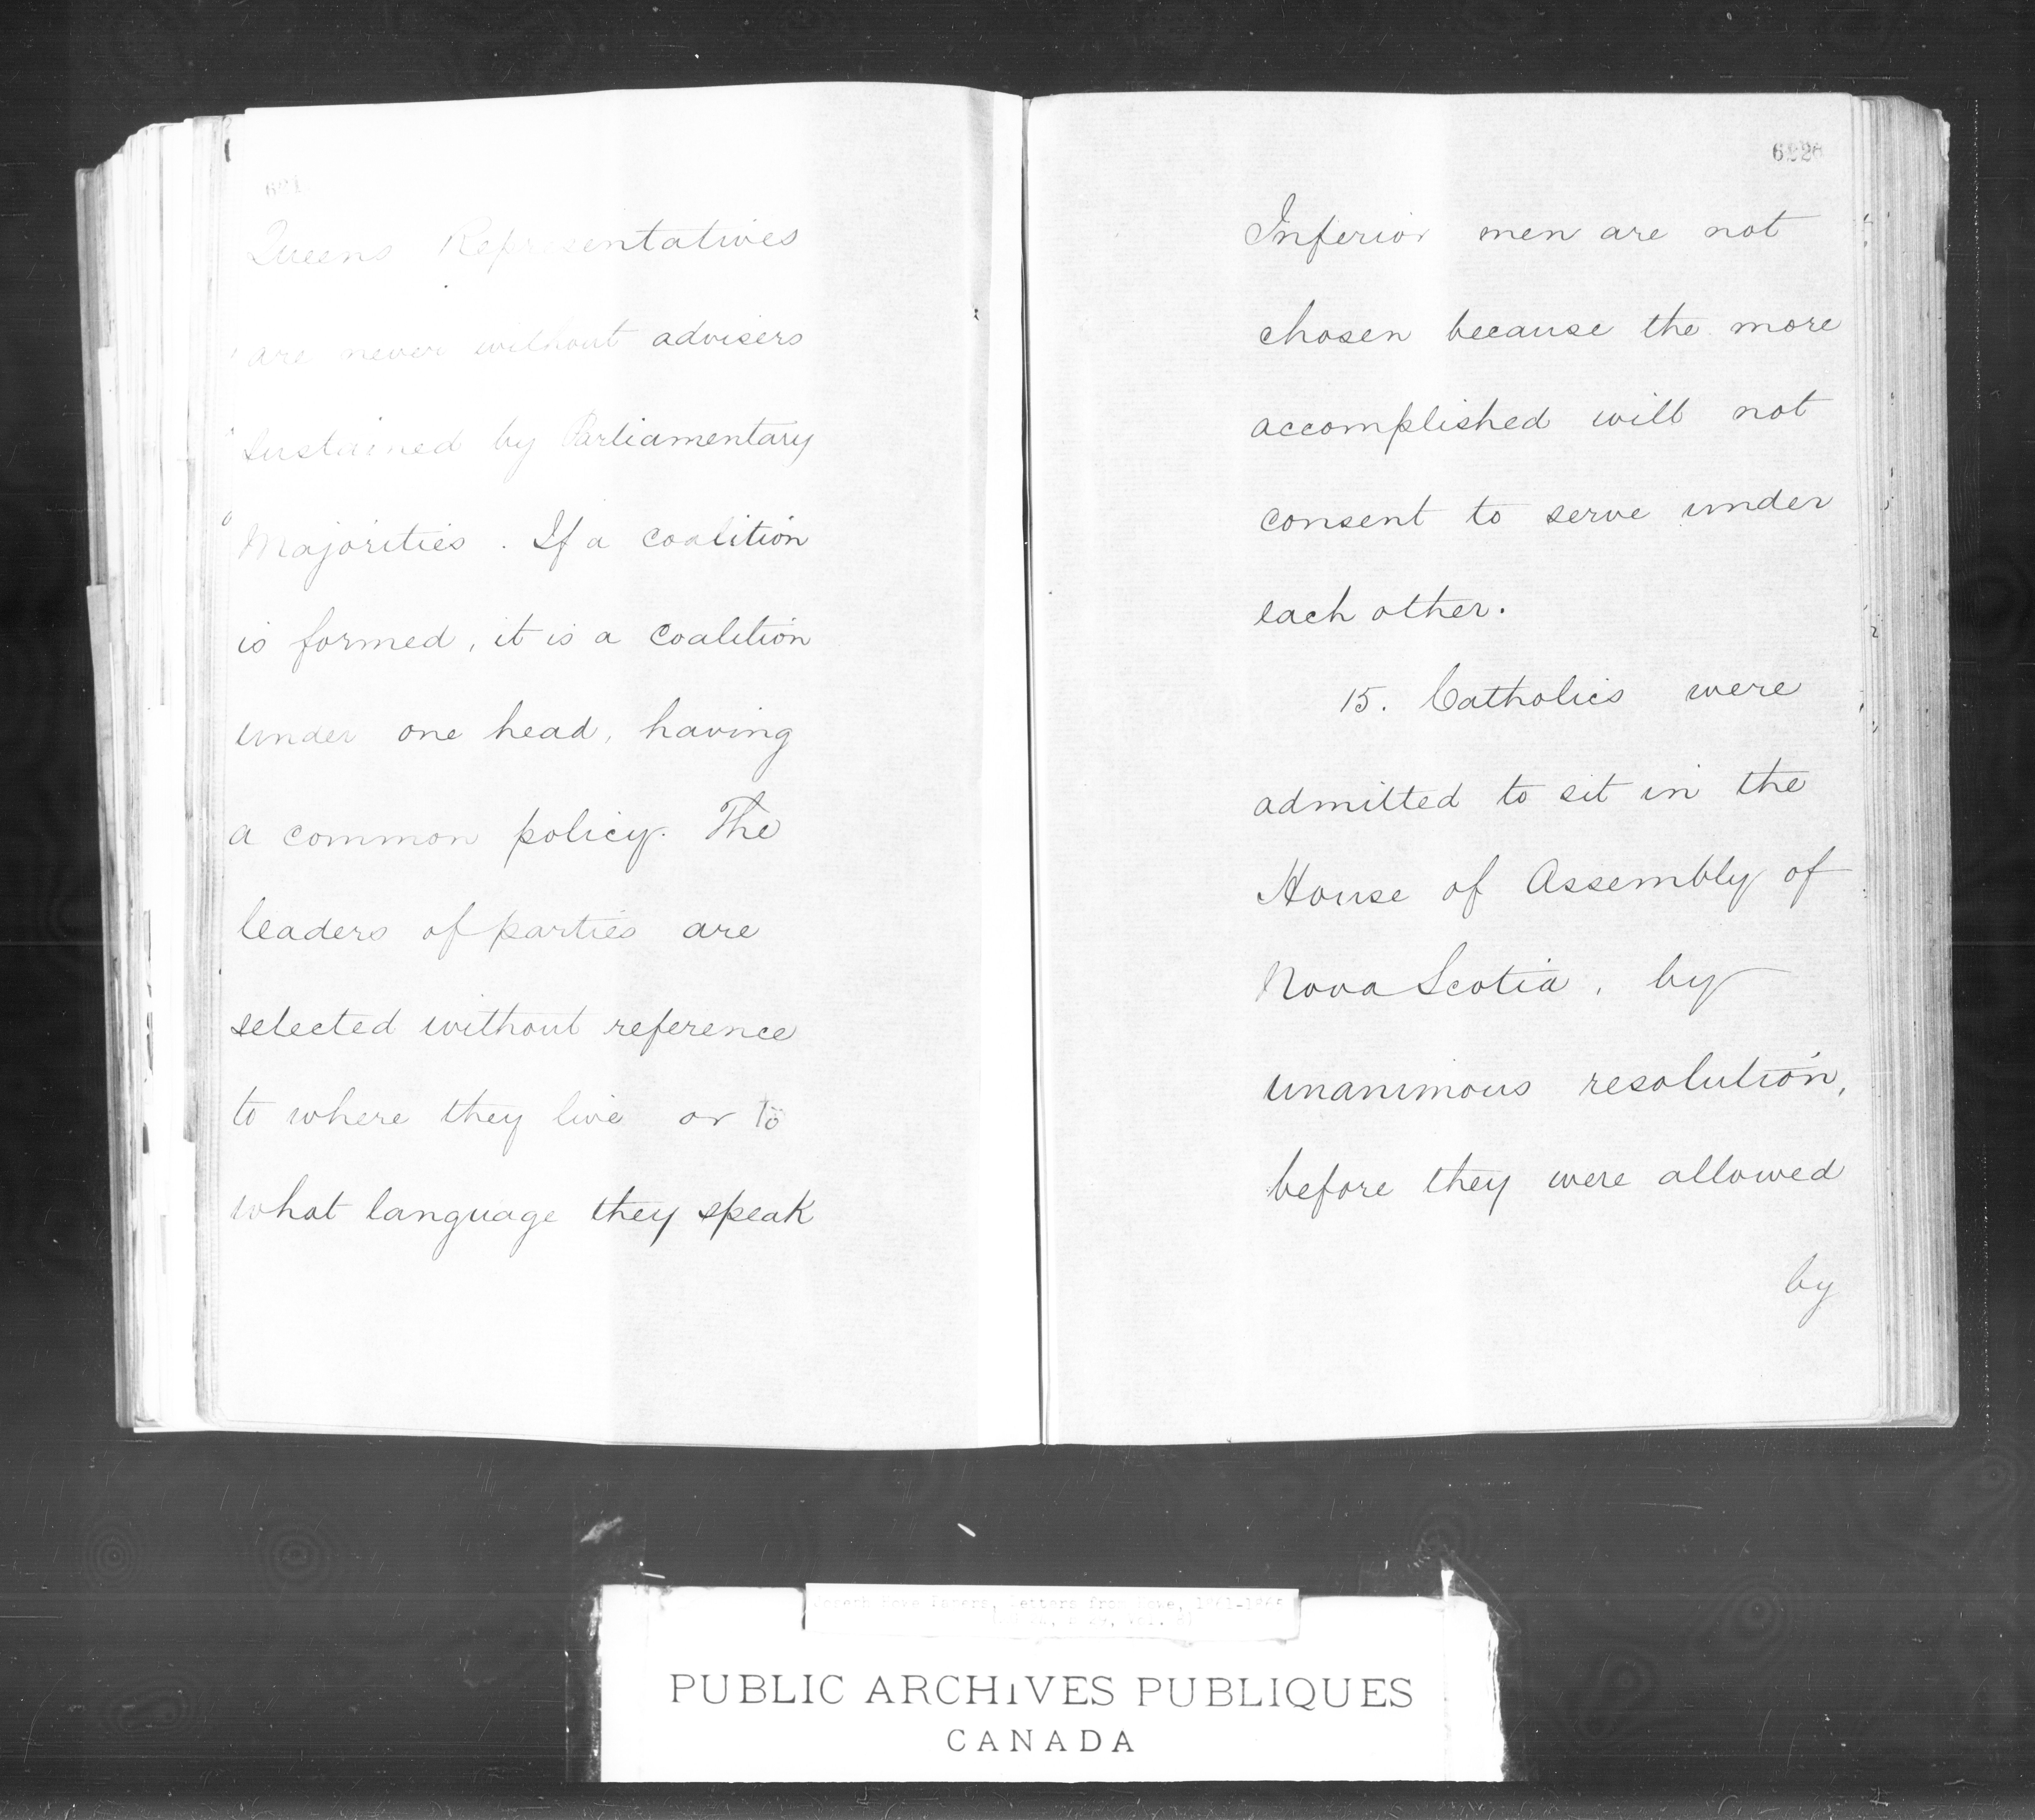 Queens Representatives
are never without advisers
sustained by Parliamentary
Majorities. If a coalition
is formed, it is a coalition
under one head, having
a common policy. The
leaders of parties are
selected without reference
to where they live or to
what language they speak
Inferior men are not
chosen because the more
accomplished will not
consent to serve under
each other.
15. Catholics were
admitted to sit in the
House of Assembly of
Nova Scotia, by
unanimous resolution,
before they were allowed
by
PUBLIC ARCHIVES PUBLIQUES
CANADA